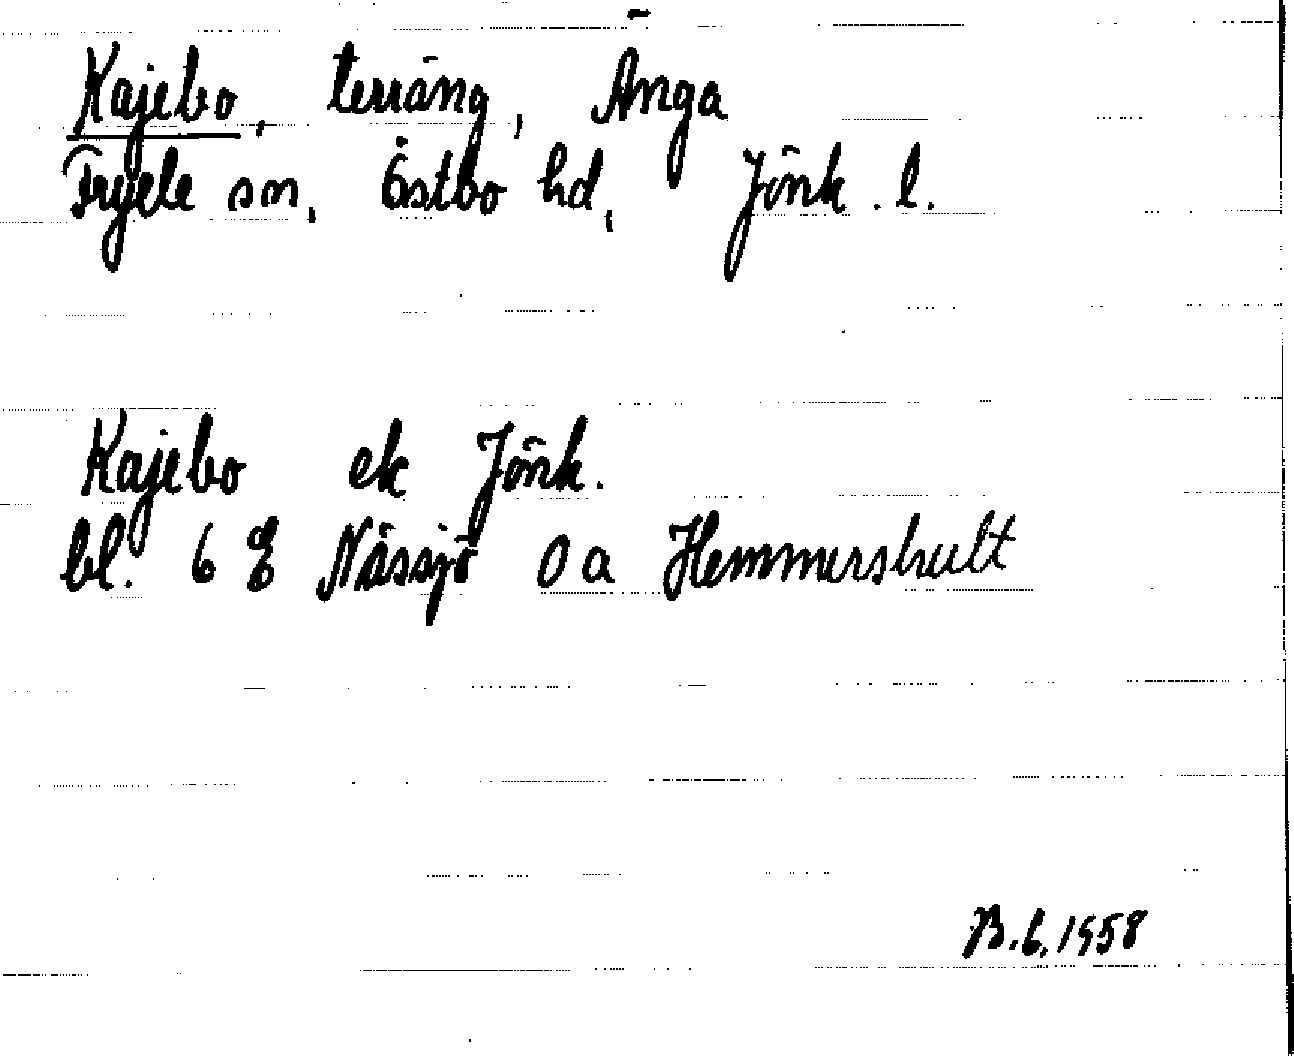 Kajebo, terräng, Änga
Fryele sn, Östbo hd, Jönk. l.
Kajebo ek Jönk.
bl. 6 E Nässjö 0a Hemmershult
B.L. 1958